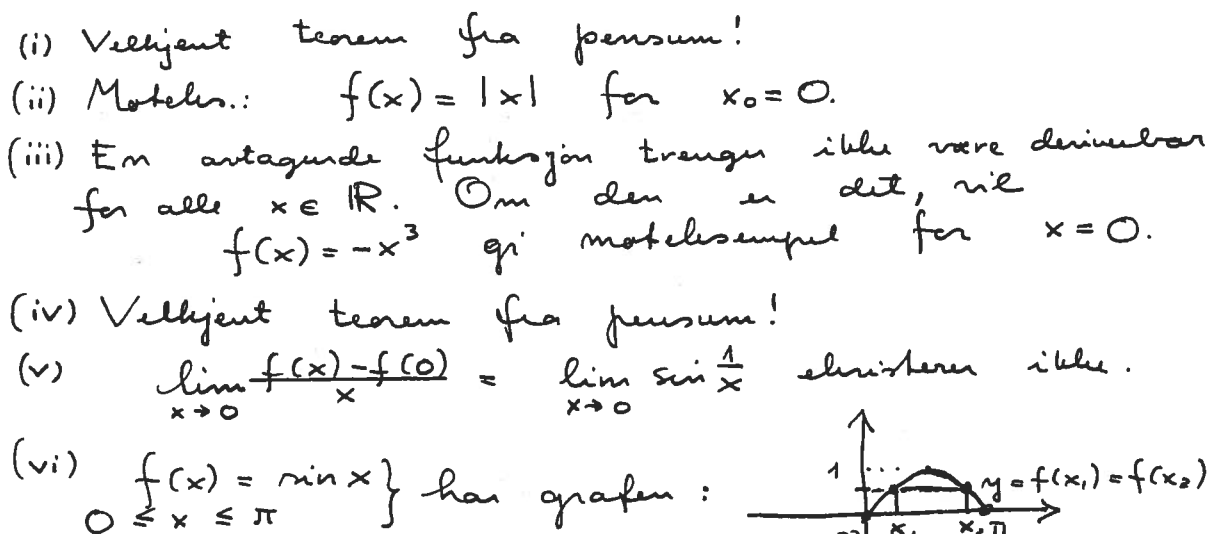 (i) Velkjent teorem fra pensum!
(ii) Moteks.: f(x) = |x| for x₀ = 0.
(iii) En avtagende funksjon trenger ikke være deriverbar
for alle x ∈ ℝ. Om den er det, vil
f(x) = -x³ gi moteksempel for x = 0.
(iv) Velkjent teorem fra pensum!
(v) lim_{x→0} (f(x) - f(0))/x = lim_{x→0} sin 1/x eksisterer ikke.
(vi) f(x) = sin x } har grafen :
0 ≤ x ≤ π
1
y = f(x₁) = f(x₂)
x₁ x₂ π